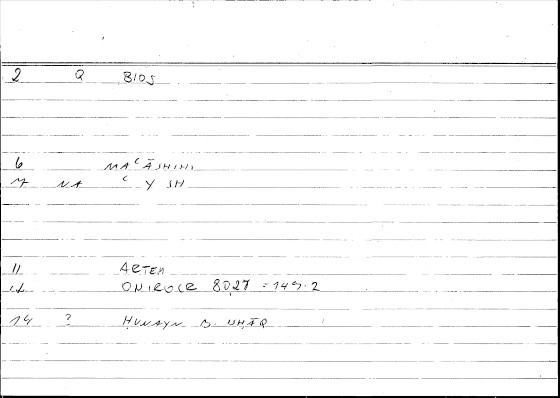 2 Q BIOS
6 MAʿĀSHIHI
7 NA ʿ Y SH
11 ARTEM
12 ONIROCR 80,27 = 149.2
14 ? ḤUNAYN B. ISḤĀQ